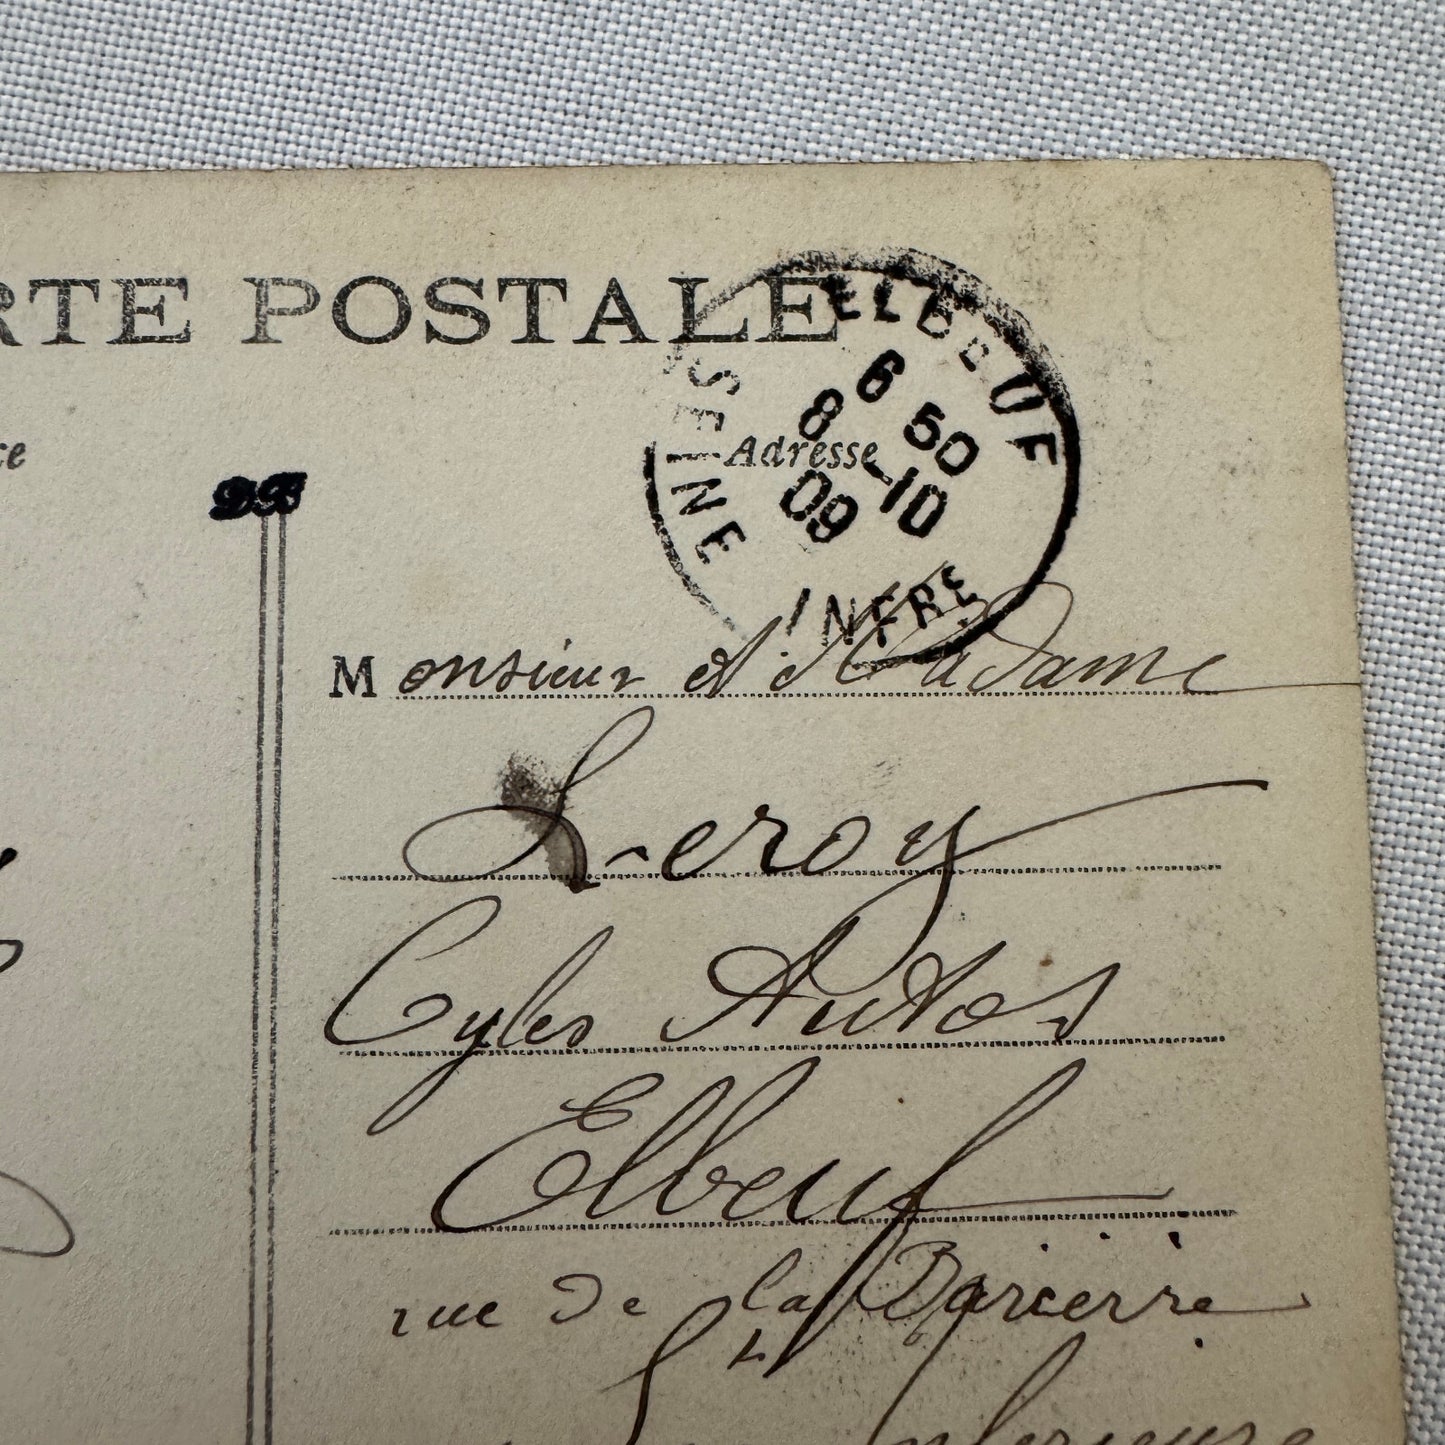 RTE POSTALE
ELBEUF
SEINE INFRE
6 50
8 -10
09
re
Adresse
DB
Monsieur et Madame
Leroy
Cycles Autos
Elbeuf
rue de la
Inférieure